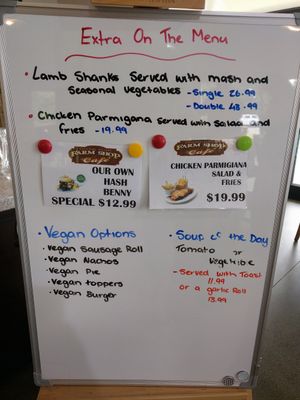 Extra On The Menu
• Lamb Shanks Served with mash and
seasonal vegetables - Single 26.99
- Double 48.99
• Chicken Parmigiana served with Salad and
fries - 19.99
FARM SHOP
Cafe
OUR OWN
HASH
BENNY
SPECIAL $12.99
FARM SHOP
Cafe
CHICKEN PARMIGIANA
SALAD &
FRIES
$19.99
• Vegan Options
• Vegan Sausage Roll
• Vegan Nachos
• Vegan Pie
• Vegan toppers
• Vegan Burger
• Soup of the Day
Tomato or
Vegetable
- Served with Toast
11.99
or a garlic Roll
13.99